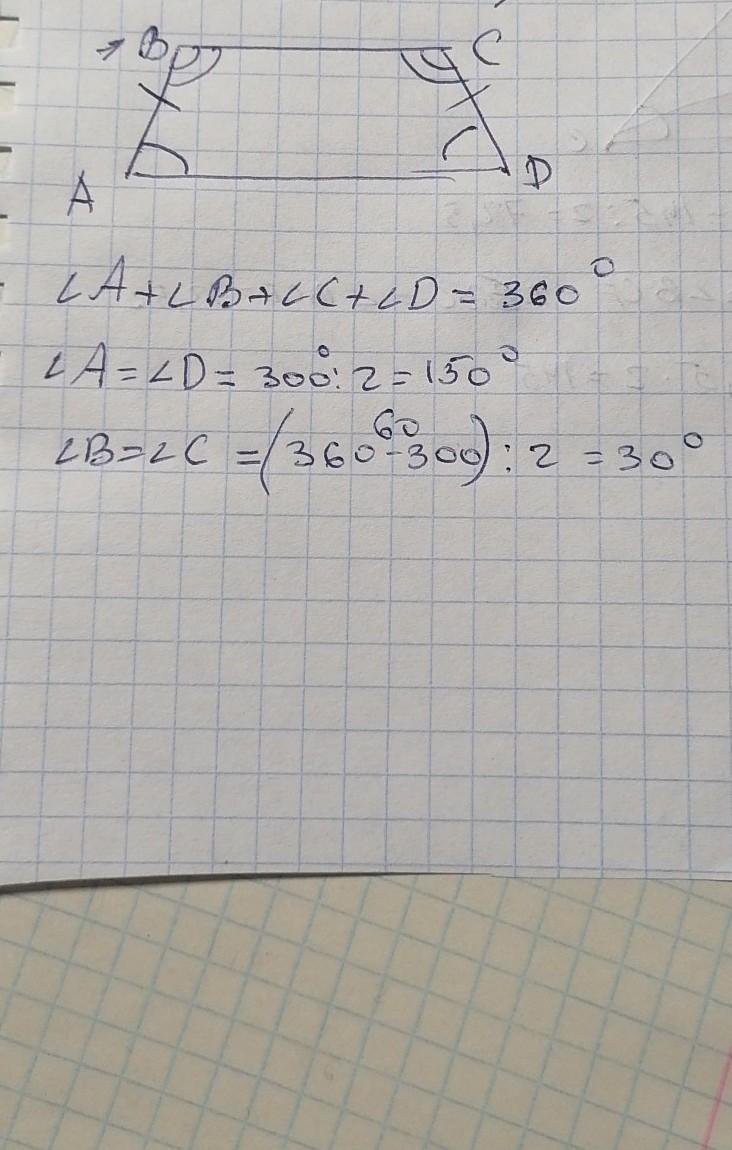 B C
A D
∠A+∠B+∠C+∠D = 360°
∠A=∠D= 300°:2=150°
60
∠B=∠C =(360-300):2 =30°